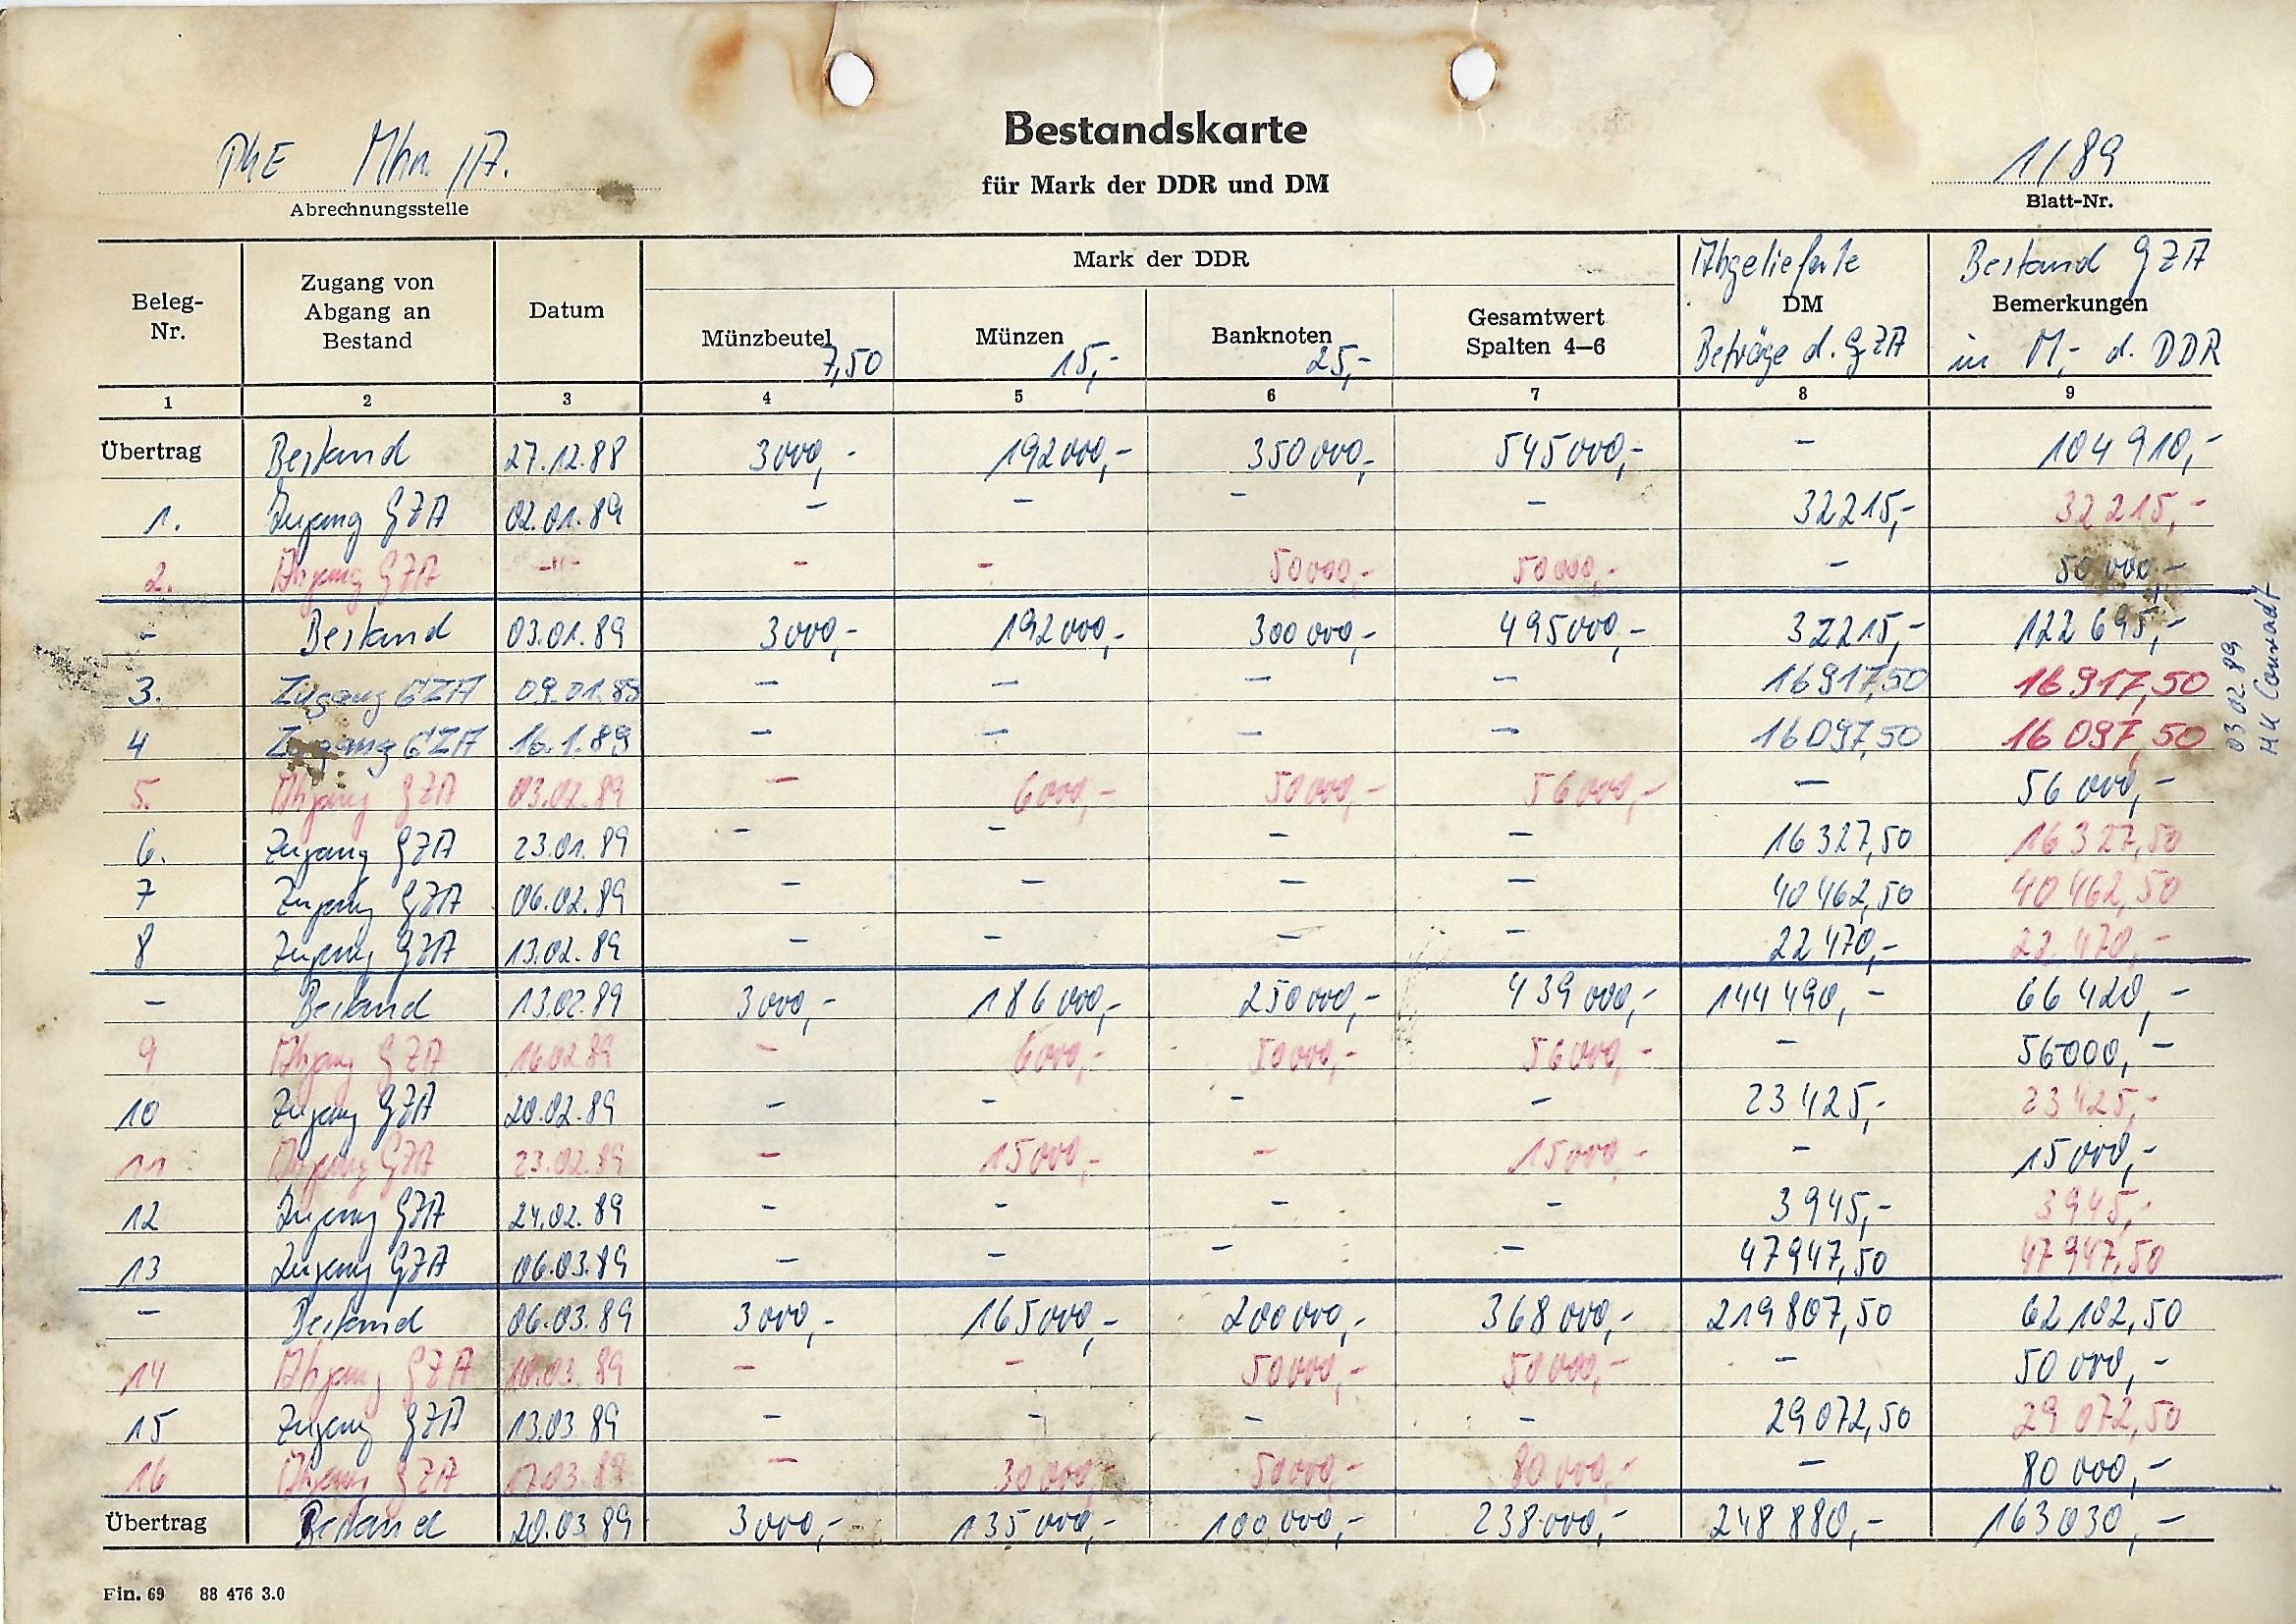 Bestandskarte
für Mark der DDR und DM
PKE Mhn./A.
Abrechnungsstelle
1/89
Blatt-Nr.
Beleg-Nr. Zugang von Abgang an Bestand Datum Mark der DDR Abgelieferte DM Beträge d. GZA Bestand GZA Bemerkungen in M,- d. DDR
Münzbeutel 7,50 Münzen 15,- Banknoten 25,- Gesamtwert Spalten 4–6
1 2 3 4 5 6 7 8 9
Übertrag Bestand 27.12.88 3000,- 192000,- 350000,- 545000,- - 104910,-
1. Zugang GZA 02.01.89 - - - - 32215,- 32215,-
2. Abgang GZA -"- - - 50000,- 50000,- - 50000,-
- Bestand 03.01.89 3000,- 192000,- 300000,- 495000,- 32215,- 122695,-
3. Zugang GZA 09.01.89 - - - - 16917,50 16917,50
4 Zugang GZA 16.1.89 - - - - 16097,50 16097,50
5. Abgang GZA 03.02.89 - 6000,- 50000,- 56000,- - 56000,-
6. Zugang GZA 23.01.89 - - - - 16327,50 16327,50
7 Zugang GZA 06.02.89 - - - - 40462,50 40462,50
8 Zugang GZA 13.02.89 - - - - 22470,- 22470,-
- Bestand 13.02.89 3000,- 186000,- 250000,- 439000,- 144490,- 66420,-
9 Abgang GZA 16.02.89 - 6000,- 50000,- 56000,- - 56000,-
10 Zugang GZA 20.02.89 - - - - 23425,- 23425,-
11 Abgang GZA 23.02.89 - 15000,- - 15000,- - 15000,-
12 Zugang GZA 24.02.89 - - - - 3945,- 3945,-
13 Zugang GZA 06.03.89 - - - - 47947,50 47947,50
- Bestand 06.03.89 3000,- 165000,- 200000,- 368000,- 219807,50 62102,50
14 Abgang GZA 10.03.89 - - 50000,- 50000,- - 50000,-
15 Zugang GZA 13.03.89 - - - - 29072,50 29072,50
16 Abgang GZA 17.03.89 - 30000,- 50000,- 80000,- - 80000,-
Übertrag Bestand 20.03.89 3000,- 135000,- 100000,- 238000,- 248880,- 163030,-
03 02 89
Fin. 69 88 476 3.0